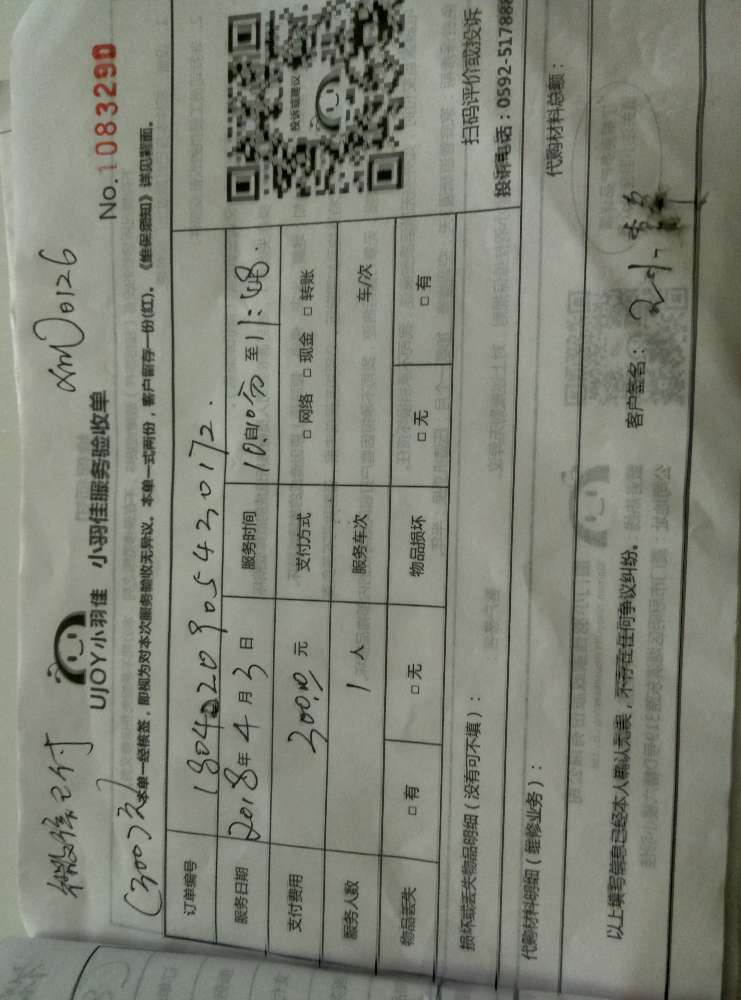 微信已付
(300元)
XM00126
UJOY小羽佳 小羽佳服务验收单
No.1083290
本单一经核签，即视为对本次服务验收无异议。本单一式两份，客户留存一份(红)。《维保须知》详见背面。
订单编号 180402090543 0172.
服务日期 2018年4月3日 服务时间 10自10分至11:48.
支付费用 300.00元 支付方式 □网络 □现金 □转账
服务人数 1人 服务车次 车/次
物品丢失 □有 □无 物品损坏 □无 □有
投诉或建议
扫码评价或投诉
投诉电话：0592-517888
损坏或丢失物品明细（没有可不填）：
代购材料明细（维修业务）：
代购材料总额：
以上填写信息已经本人确认无误，不存在任何争议纠纷。
客户签名：